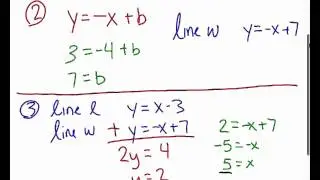 ② y=-x+b line w y=-x+7
3=-4+b
7=b
③ line l y=x-3
line w + y=-x+7 2=-x+7
2y=4 -5=-x
y=2 5=x